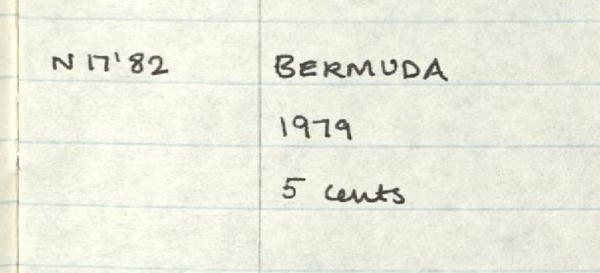 N 17'82 BERMUDA
1979
5 cents